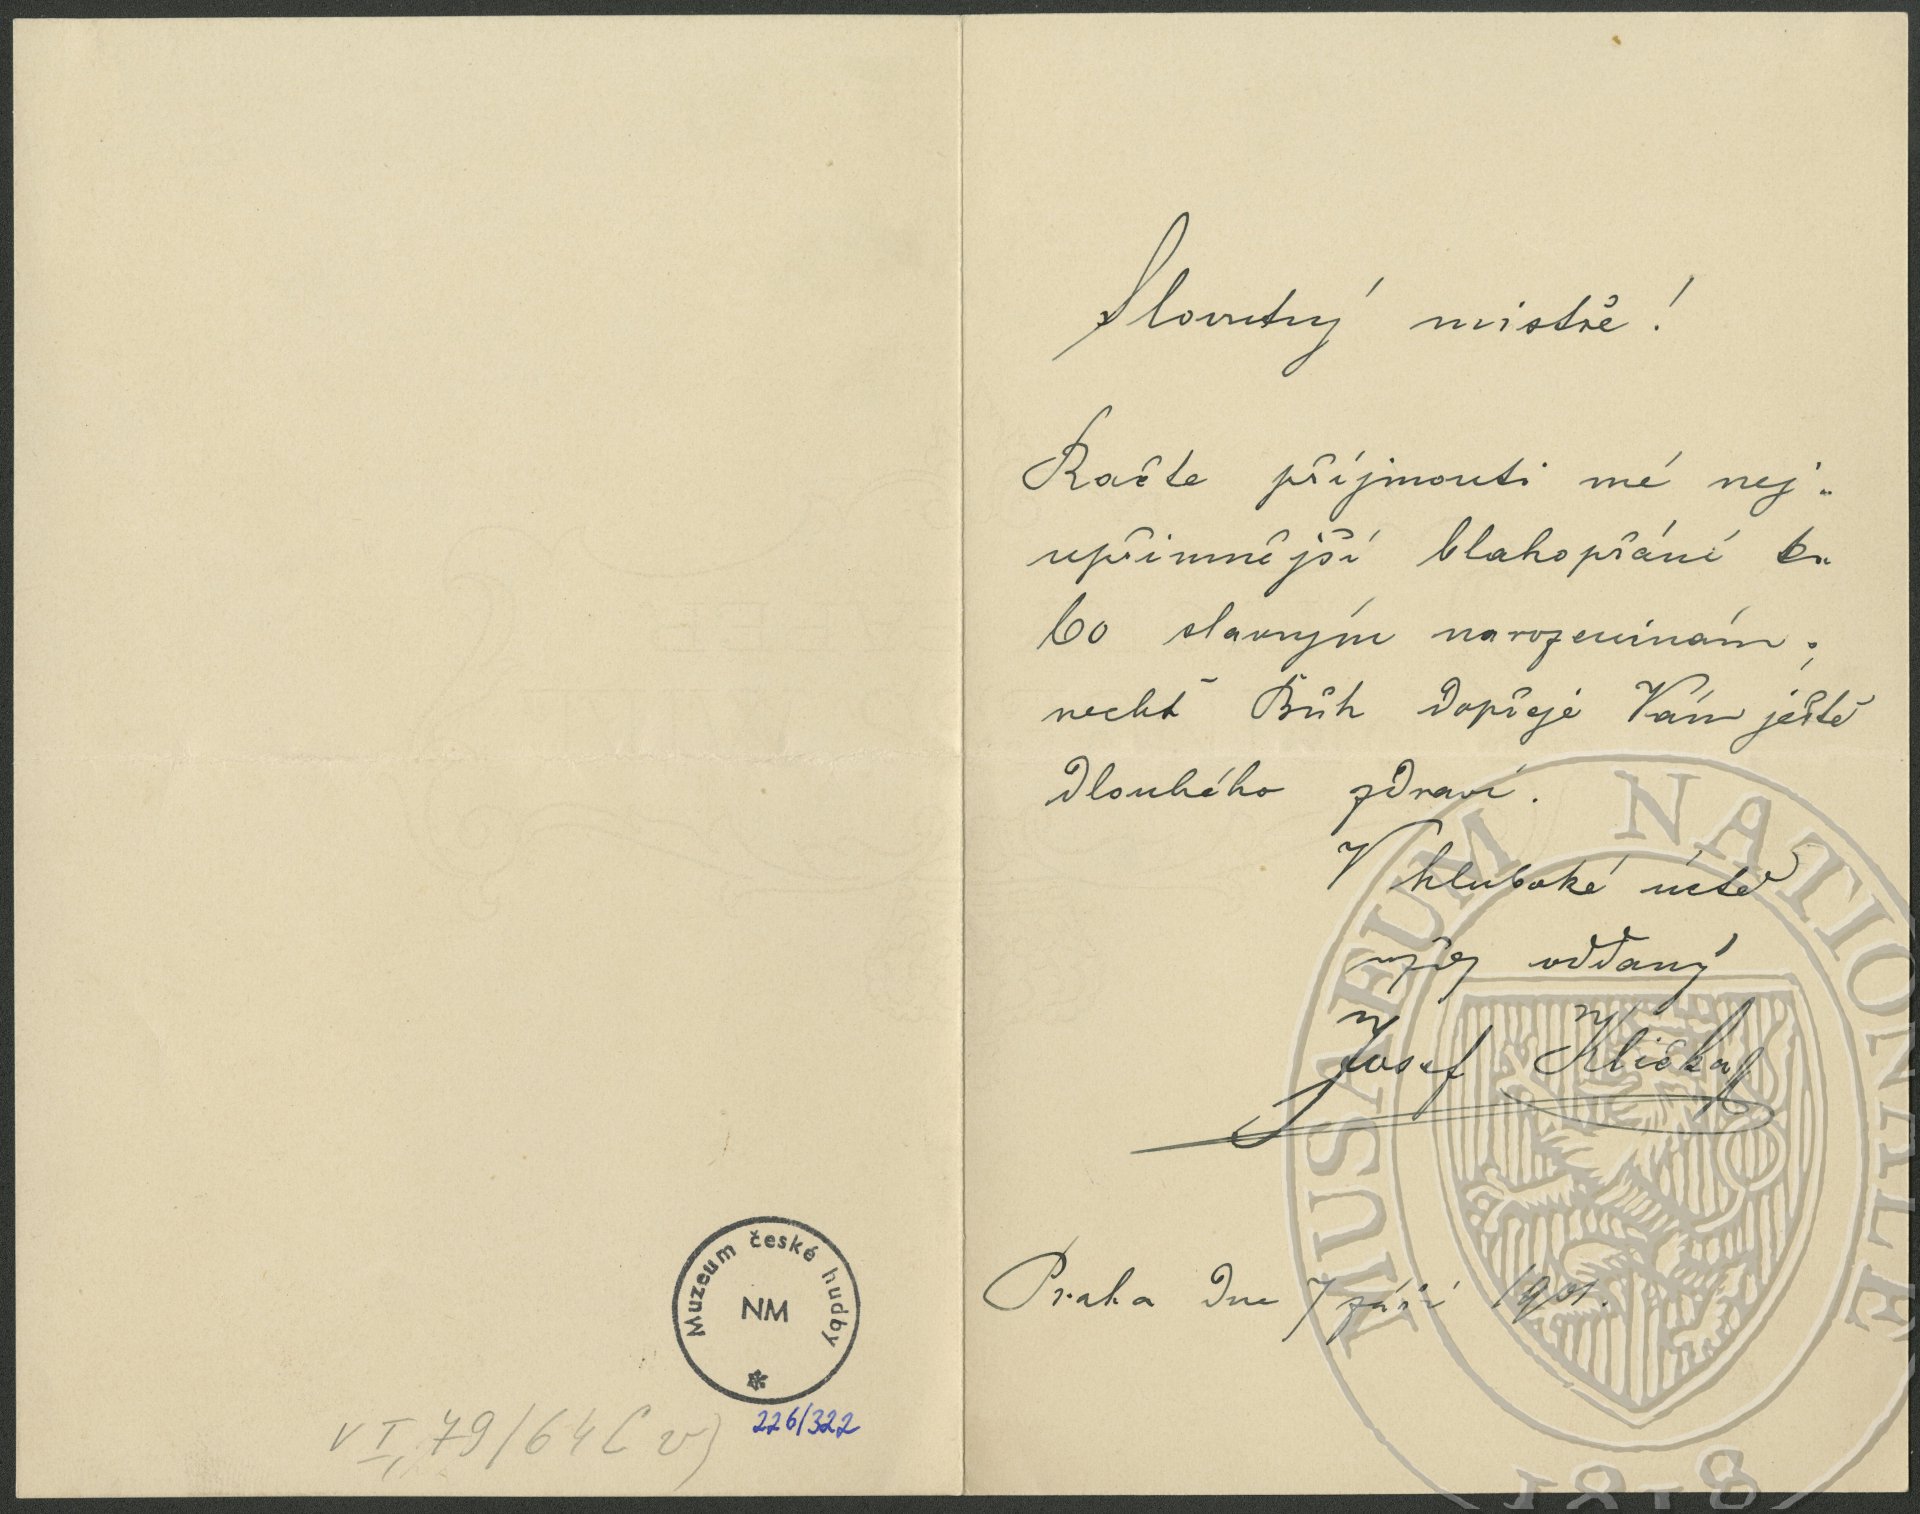 Slovutný mistře!
Račte příjmouti mé nej„
upřimnější blahopřání k„
60 slavným narozeninám;
nechť Bůh dopřeje Vám ještě
dlouhého zdraví.
V hluboké úctě
vždy oddaný
Josef Klička
Praha dne 7 září 1901.
Muzeum české hudby
NM
226/322
VI, 79/64
MUSAEUM NATIONALE
1818